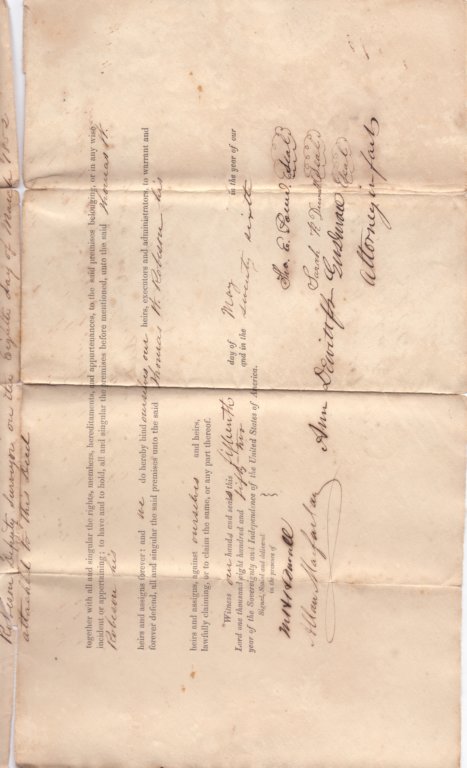 deputy Surveyor on the Eighth day of March 1852
attached to this deed
together with all and singular the rights, members, hereditaments, and appurtenances, to the said premises belonging, or in any wise
incident or appertaining; to have and to hold, all and singular the premises before mentioned, unto the said Thomas W.
Robeson his
heirs and assigns forever: and we do hereby bind ourselves, our heirs, executors and administrators, to warrant and
forever defend, all and singular the said premises unto the said Thomas W. Robeson his
heirs and assigns, against ourselves and heirs,
lawfully claiming, or to claim the same, or any part thereof.
Witness our hands and seals this fifteenth day of May in the year of our
Lord one thousand eight hundred and fifty two and in the seventy sixth
year of the Sovereignty and Independence of the United States of America.
Signed, Sealed and delivered
in the presence of
Allan Macfarlan
Seal
Sarah Seal
Ann Dewitt Seal
Attorney in fact